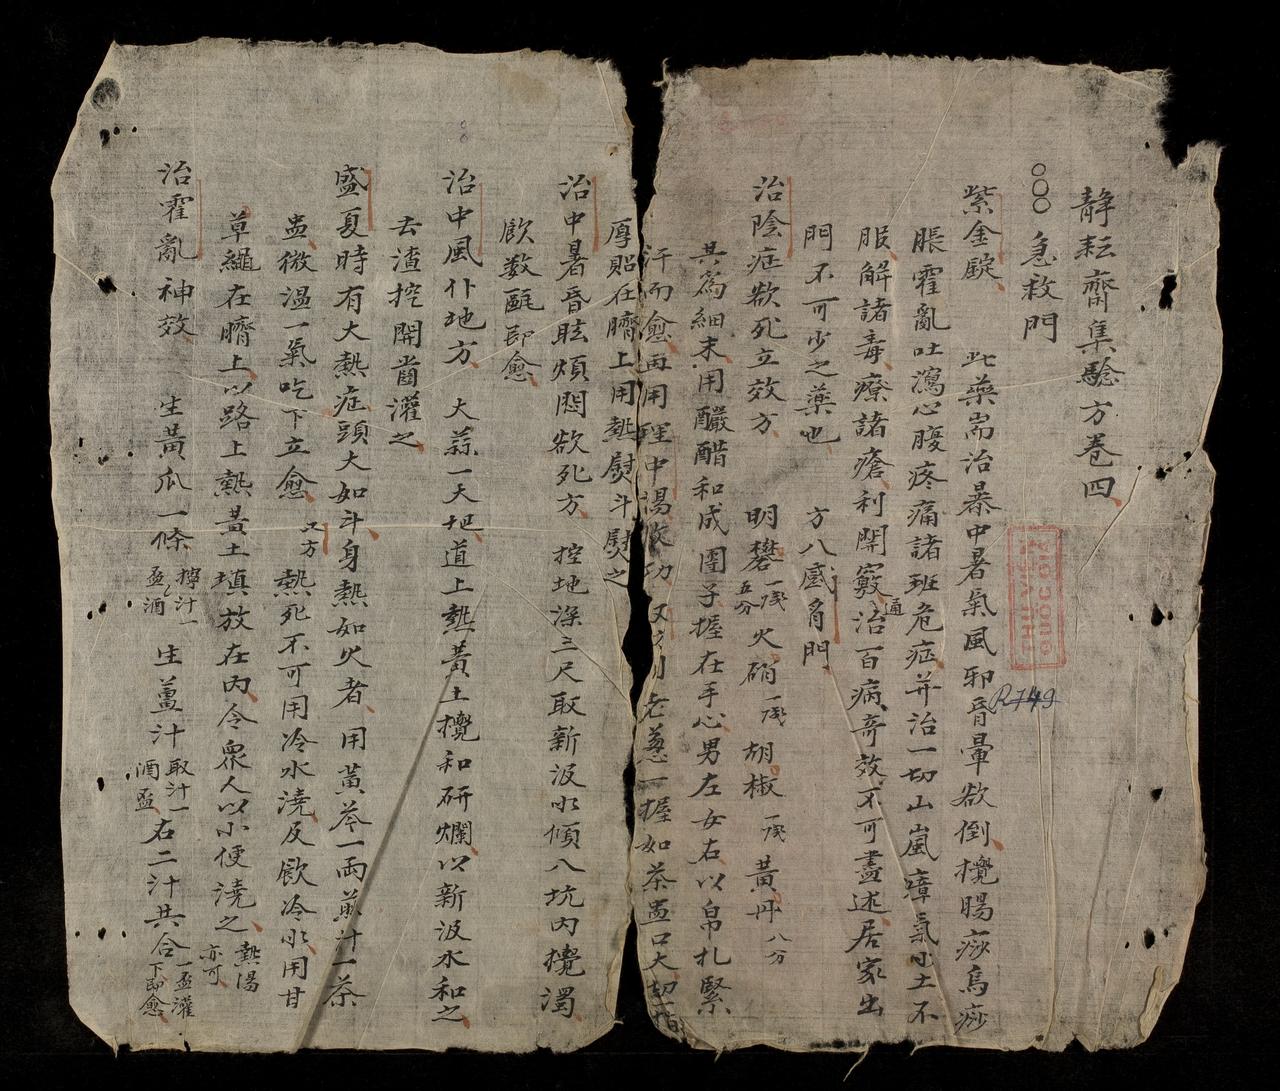 靜耘齋集驗方卷四
急救門
紫金錠 此藥耑治暴中暑氣風邪昏暈欲倒攪腸痧烏痧
脹霍亂吐瀉心腹疼痛諸班危症并治一切山嵐瘴氣水土不
服解諸毒療諸瘡利開竅通治百病奇效不可盡述居家出
門不可少之藥也 方八感冐門
治陰症欲死立效方 明礬一戔五分 火硝一戔 胡椒一戔 黃丹八分
共為細末用釅醋和成團子握在手心男左女右以帛扎緊
汗而愈再用理中湯收功 又方用老葱一握如茶盅口大切一指
厚貼在臍上用熱熨斗熨之
治中暑昏眩煩悶欲死方 挖地深三尺取新汲水傾八坑內攪濁
飲数甌即愈
治中風仆地方 大蒜一大把道上熱黃土攪和研爛以新汲水和之
去渣挖開齒灌之
盛夏時有大熱症頭大如斗身熱如火者用黃芩一兩煎汁一茶
盅微溫一氣吃下立愈 又方 熱死不可用冷水澆及飲冷水用甘
草繩在臍上以路上熱黃土填放在內令眾人以小便澆之 熱湯亦可
治霍亂神效 生黃瓜一條 擰汁一盃酒 生薑汁 取汁一酒盃 右二汁共合一盃灌下即愈
THƯ VIỆN
QUỐC GIA
R.749